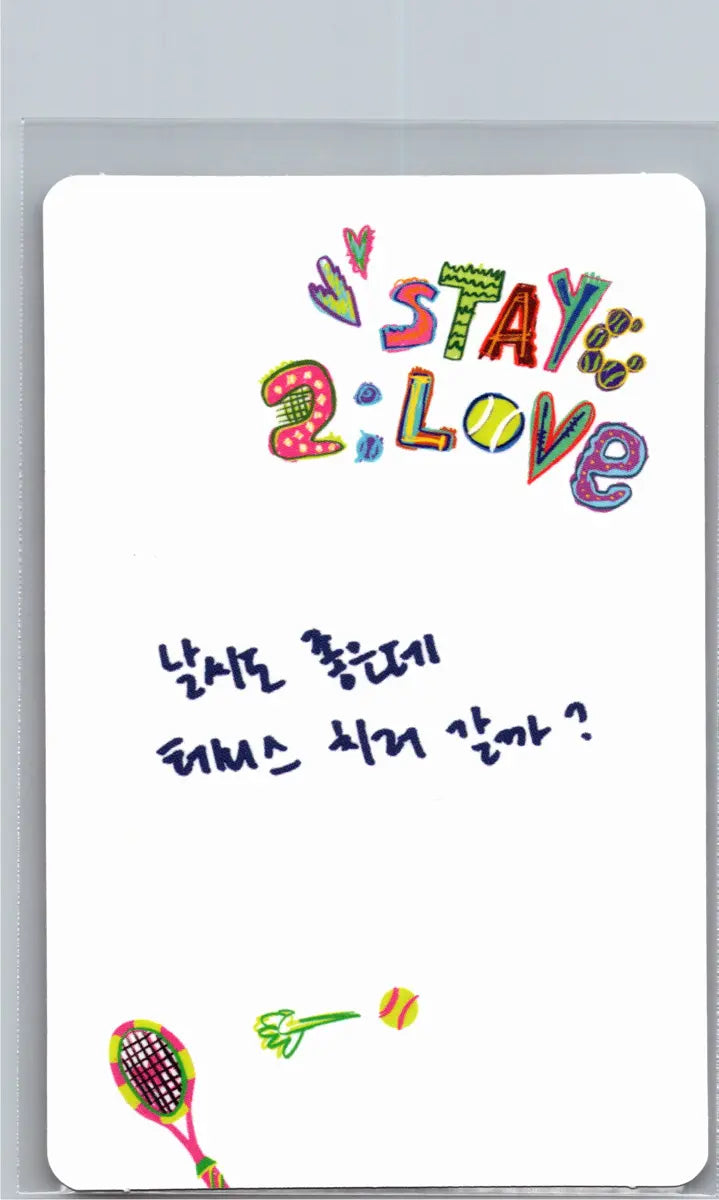 STAYC
2:LOVE
날씨도 좋은데
테니스 치러 갈까?